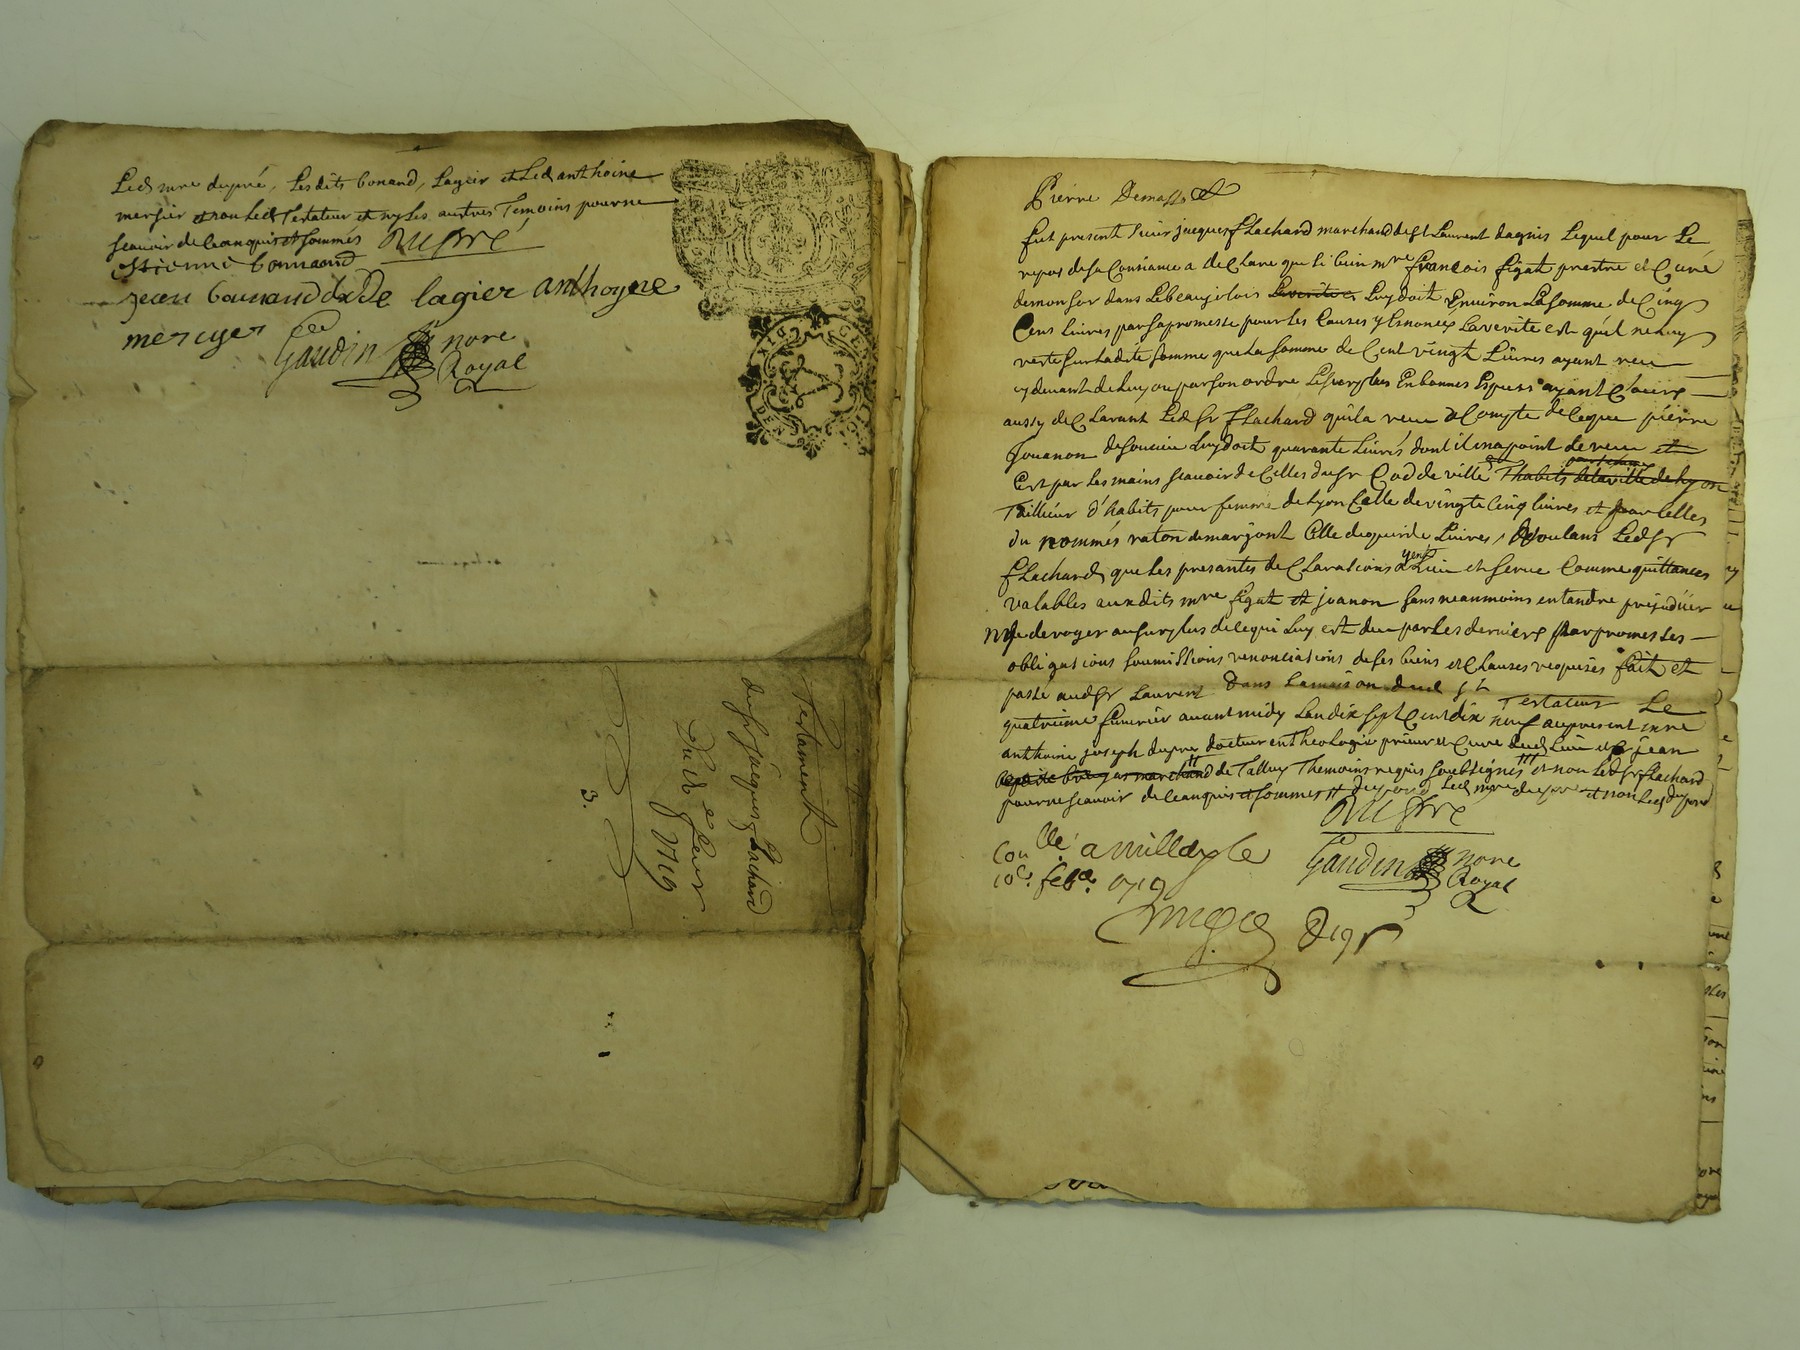 Led mre dupré, Lesdits bonand, Lagier et Led anthoine
mersier et non Led Testateur et ny Les austres Temoins pour ne
scavoir de ce anquis et sommés Dupré
estienne bonnaond
jean bounand Lagier anthoyne
mercyer Gaudin nore
Royal
Testament
du Sr jacques flachard
Du 4e feur
1719
3.
Pierre Demasso
fut present Sieur jacques flachard marchand de St Laurent dagnis Lequel pour Le
repos de sa Consiance a declare que si bien mre francois figat prestre et Curé
de monsor dans Le beaujolois Luy doit Environ La somme de Cinq
Cens livres par sa promesse pour les Causes y Esnoncés La verite est quil ne luy
reste sur ladite somme que La somme de Cent vingt Livres ayant receu
cy devant de luy ou par son ordre Le surplus En bonnes Espesses ayant Encore
aussy declarant Led Sr flachard quil a receu a Compte de ce que pierre
jouanon de soucieu Luy doit quarante Livres dont il en a point de receu et
C'est par Les mains scavoir de Celles du Sr Cadde ville
Tailleur d'habits pour femme de Lyon Celle de vingt Cinq livres et par Celles
du nommés raton de marjont Celle de quinde Livres, Voulans Led Sr
flachard que Les presantes declarations vieu et serve Comme quittances
valables auxdits mre figat et joanon sans neanmoins entandre prejudiier
ny de roger au surplus de ce qui Luy est deu par Les derniers par promesses
obligations soumissions renonciations de ses biens et Clauses requises fait et
passé aud St Laurent Dans La maison dud Sr Testateur Le
quatrieme fevrier avant midy Lan dix sept Cent dix neuf au present mre
anthoine joseph dupre docteur en Theologie prieur et Cure dud Lieu et jean
marchand de Talluy Themoins requis soubsignés et non Led Sr flachard
pour ne scavoir de ce anquis et sommes Led mre dupre et non Led
Dupré
Conllé a millery le Gaudin nore
10e. feb. 1719 Royal